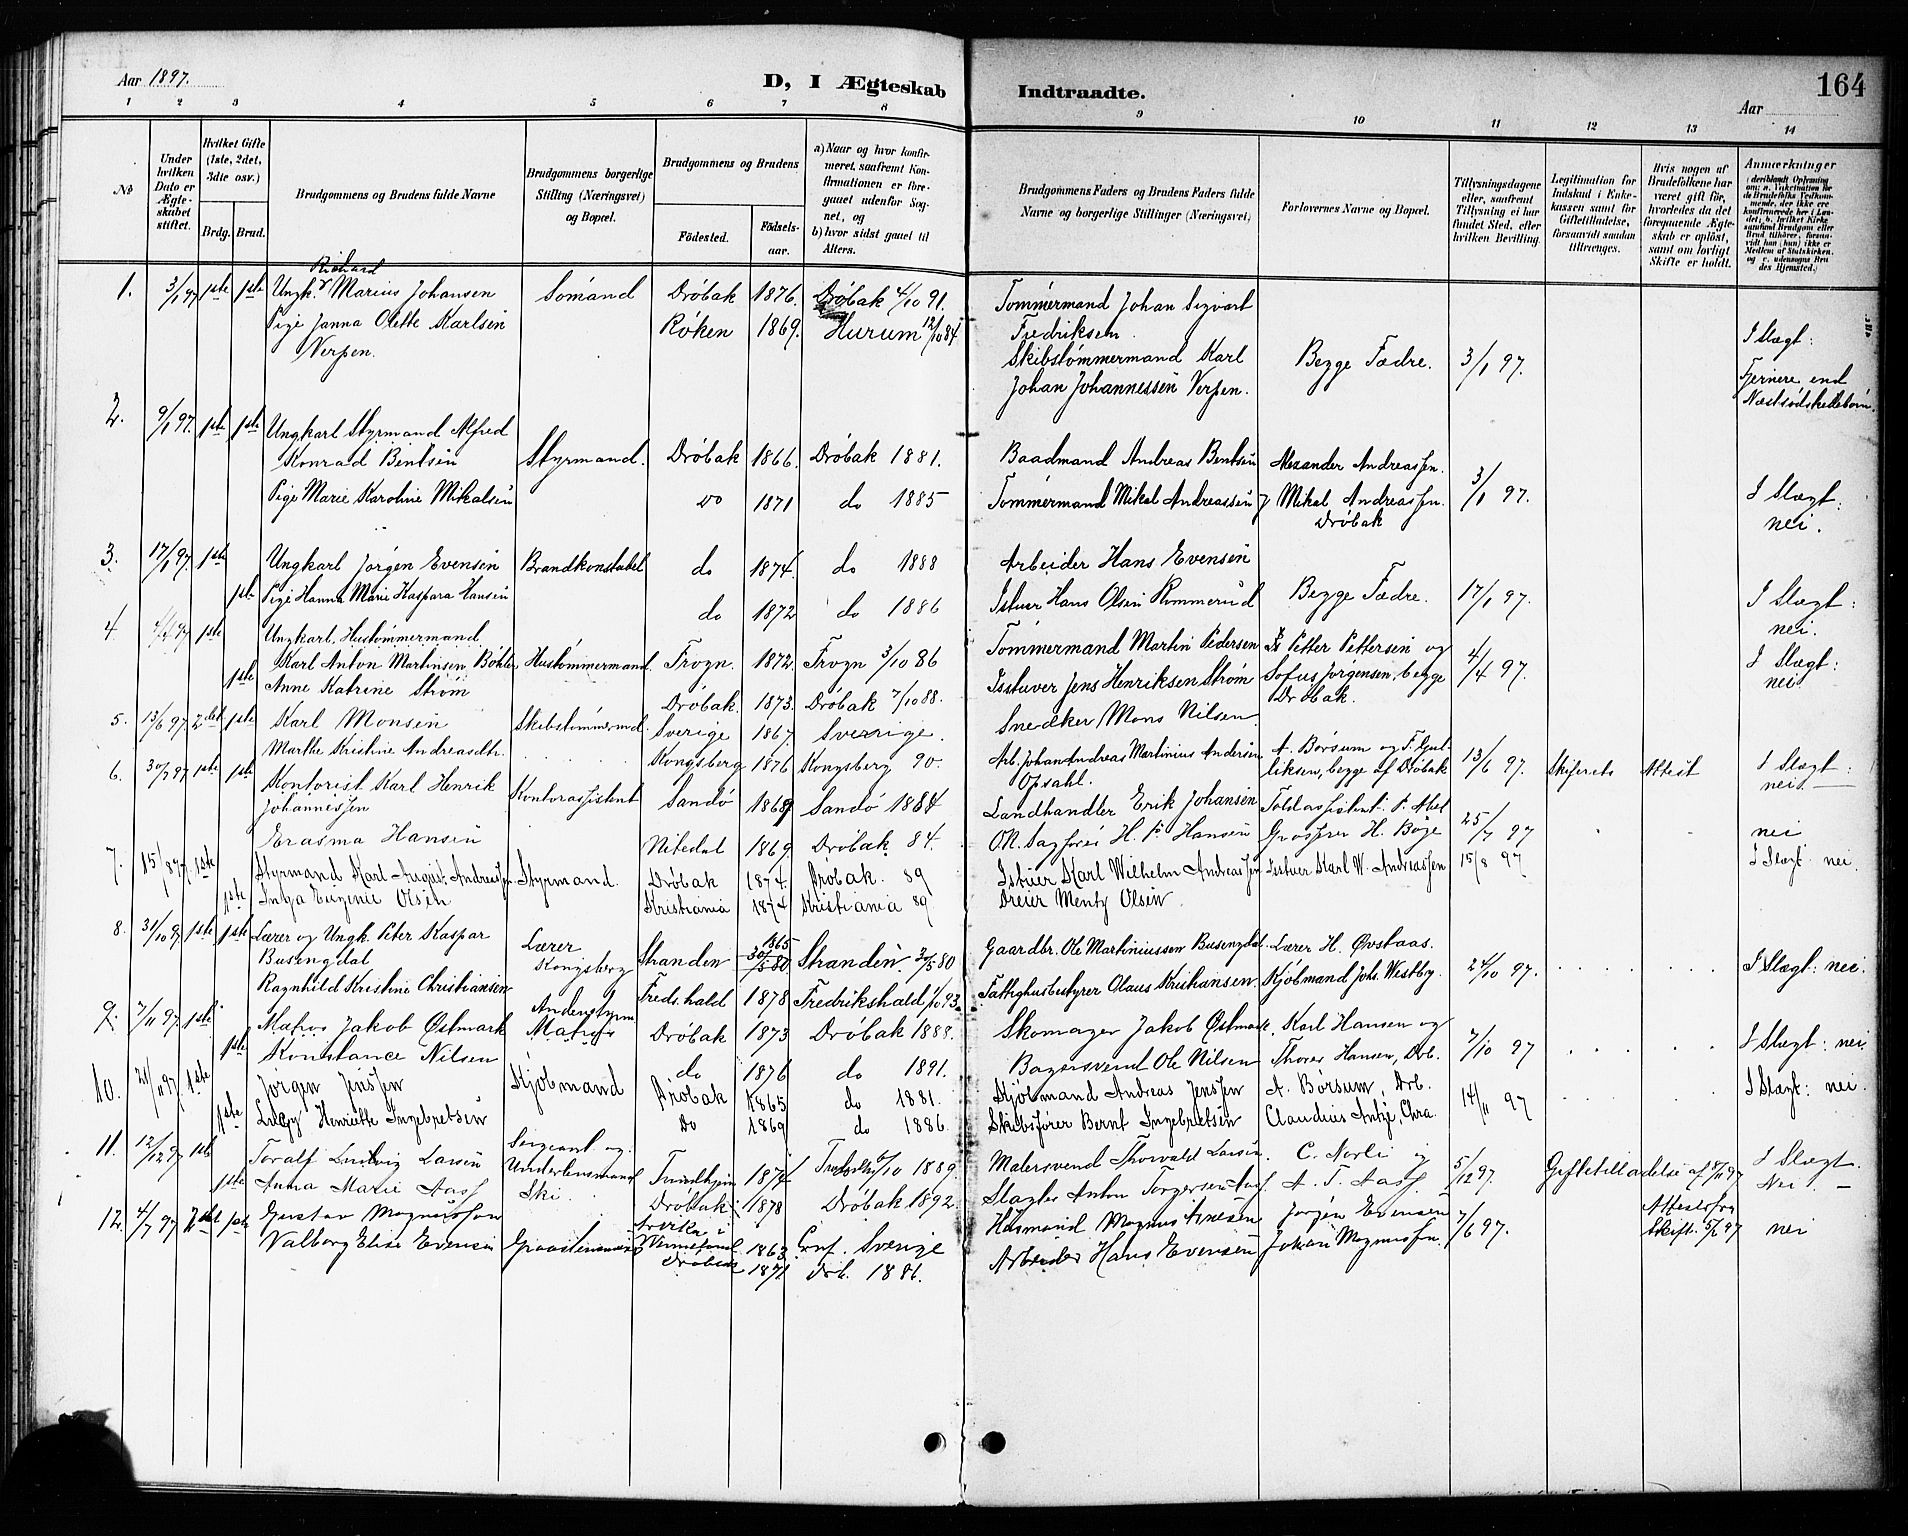 Aar 1897.
D, I Ægteskab Indtraadte.
164
Aar
1 2 3 4 5 6 7 8 9 10 11 12 13 14
№
Under hvilken Dato er Ægteskabet stiftet.
Hvilket Gifte (1ste, 2det, 3die osv.)
Brdg. Brud.
Brudgommens og Brudens fulde Navne
Brudgommens borgerlige Stilling (Næringsvei) og Bopæl.
Brudgommens og Brudens
Fødested. Fødsels-aar.
a) Naar og hvor konfirmeret, saafremt Konfirmationen er foregaaet udenfor Sognet, og
b) hvor sidst gaaet til Alters.
Brudgommens Faders og Brudens Faders fulde Navne og borgerlige Stillinger (Næringsvei)
Forlovernes Navne og Bopæl.
Tillysningsdagene eller, saafremt Tillysning ei har fundet Sted, efter hvilken Bevilling.
Legitimation for Indskud i Enkekassen samt for Giftetilladelse, forsaavidt saadan tiltrænges.
Hvis nogen af Brudefolkene har været gift før, hvorledes da det foregaaende Ægteskab er opløst, samt om lovligt Skifte er holdt.
Anmærkninger
1. 3/1 97 1ste 1ste Ungk. Richard Marius Johansen Sømand Drøbak 1876. Drøbak 4/10 91. Tømmermand Johan Sigvart Fredriksen
Pige Janna Olette Karlsen Verpen. Røken 1869. Hurum 12/10 84 Skibstømmermand Karl Johan Johannessen Verpen. Begge Fædre. 3/1 97. I Slægt: Fjernere end Næstsødskendebørn.
2. 9/1 97. 1ste 1ste Ungkarl Styrmand Alfred Konrad Bentsen Styrmand. Drøbak 1866. Drøbak 1881. Baadmand Andreas Bentsen Alexander Andreassen.
Pige Marie Karoline Mikalsen do 1871 do 1885 Tømmermand Mikal Andreassen Mikal Andreassen. Drøbak 3/1 97. I Slægt: nei.
3. 17/1 97. 1ste Ungkarl Jørgen Evensen Brandkonstabel do 1874. do 1888 Arbeider Hans Evensen
1ste Pige Hanna Marie Kaspara Hansen do 1872 do 1886 Istuer Hans Olsen Rommerud Begge Fædre. 17/1 97. I Slægt: nei.
4. 4/4 97 1ste Ungkarl. Hustømmermand Karl Anton Martinsen Bøhler Hustømmermand. Frogn. 1872. Frogn 3/10 86 Tømmermand Martin Pedersen Petter Pettersen og
1ste Anne Katrine Strøm Drøbak. 1873. Drøbak 7/10 88. Isstuver Jens Henriksen Strøm Sofus Jørgensen, begge Drøbak. 4/4 97. I Slægt: nei.
5. 13/6 97 2det 1ste Karl Monsen Skibstømmermd. Sverige 1867. Sverige. Snedker Mons Nilsen
Marthe Kristine Andreasdtr. Kongsberg 1876 Kongsberg 90. Arb. Johan Andreas Martinius Andersen Opsahl. A. Børsum og F. Gulliksen, begge af Drøbak 13/6 97. Skifterets Attest I Slægt: nei.
6. 30/7 97 1ste 1ste Kontorist Karl Henrik Johannessen Kontorassistent Sandø 1868 Sandø 1884 Landhandler Erik Johansen Toldassistent P. Abel
Erasma Hansen Nitedal 1869. Drøbak 84. Sagfører H. P. Hansen Grosserer H. Boje 25/7 97 nei
7. 15/8 97. 1ste Styrmand Karl August Andreassen Styrmand. Drøbak 1874. Drøbak. 89 Istuer Karl Wilhelm Andreassen Istuer Karl W. Andreassen 15/8 97 I Slægt: nei.
1ste Inga Eugenie Olsen Kristiania 1874 Kristiania 89 Dreier Mentz Olsen
8. 31/10 97 1ste 1ste Lærer og Ungk. Peter Kaspar Busengdal Lærer Kongsberg Stranden 1865 30/5 80 Stranden. 30/5 80 Gaardbr. Ole Martiniussen Busengdal. Lærer H. Øvstaas.
Ragnhild Kristine Christiansen Fredr.hald 1878 Fredrikshald 1/10 93. Fattighusbestyrer Olaus Kristiansen. Kjøbmand Johs. Westby. 24/10 97. I Slægt: nei.
9. 7/11 97. 1ste Matros Jakob Østmark Andenstyrm Matros Drøbak 1873 Drøbak 1888. Skomager Jakob Østmark. Karl Hansen og
1ste Konstance Nilsen do 1876 do 1891. Bagersvend Ole Nilsen Thorer Hansen, Drb. 7/10 97 I Slægt: nei
10. 21/11 97 1ste Jørgen Jenssen Kjøbmand Drøbak 1865 do 1881. Kjøbmand Andreas Jenssen A. Børsum, Drb.
1ste Henriette Ingebretsen Do 1869 do 1886. Skibsfører Bernt Ingebretsen Claudius Chra. 14/11 97 I Slægt: nei.
11. 12/12 97 1ste Toralf Ludvig Larsen Sergeant og Underlensmand Ski. 1874 10 1889. Malersvend Thorvald Larsen. C. Norli og
1ste Anna Marie Aass Drøbak 1878 Drøbak 1892. Slagter Anton Torgersen Aass. A. T. Aass. 5/12 97. Giftetilladelse af I Slægt. Nei.
12. 4/7 97 2det 1ste Gustav Magnussen Sverke i Vermeland 1863. Conf. Sverige Husmand Magnus Jørgen Evensen
Valborg Elise Evensen Drøbak 1871 Drb. 1886. Arbeider Hans Evensen Johan Magnussen. 7/6 97. Attest fra Skift. nei